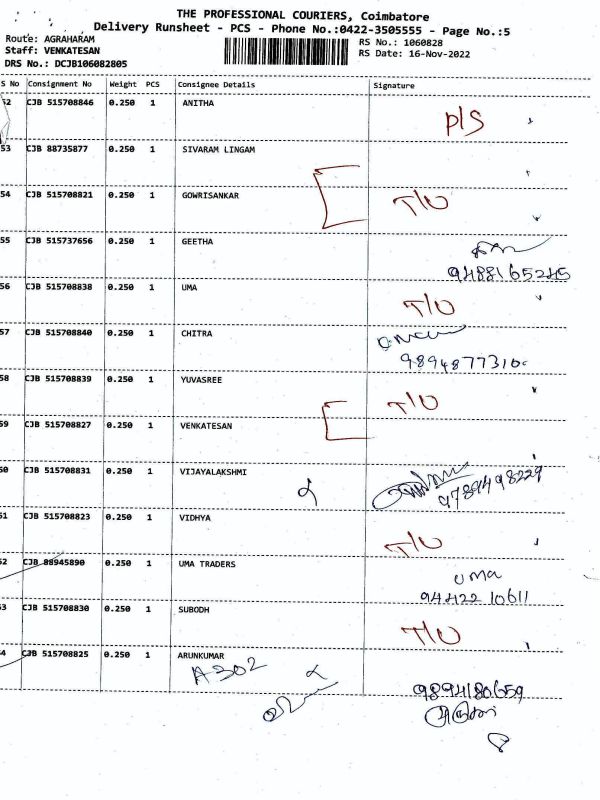 THE PROFESSIONAL COURIERS, Coimbatore
Delivery Runsheet - PCS - Phone No.:0422-3505555 - Page No.:5
Route: AGRAHARAM
Staff: VENKATESAN
DRS No.: DCJB106082805
RS No.: 1060828
RS Date: 16-Nov-2022
S No Consignment No Weight PCS Consignee Details Signature
52 CJB 515708846 0.250 1 ANITHA P/S
53 CJB 88735877 0.250 1 SIVARAM LINGAM
54 CJB 515708821 0.250 1 GOWRISANKAR T/O
55 CJB 515737656 0.250 1 GEETHA
9488165245
56 CJB 515708838 0.250 1 UMA T/O
57 CJB 515708840 0.250 1 CHITRA
9894877310
58 CJB 515708839 0.250 1 YUVASREE T/O
59 CJB 515708827 0.250 1 VENKATESAN
60 CJB 515708831 0.250 1 VIJAYALAKSHMI
9789498229
61 CJB 515708823 0.250 1 VIDHYA T/O
62 CJB 88945890 0.250 1 UMA TRADERS uma
94422 10611
63 CJB 515708830 0.250 1 SUBODH T/O
64 CJB 515708825 0.250 1 ARUNKUMAR
A302
9894180659